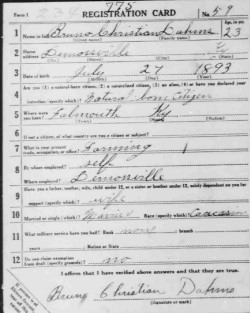 Form 1 775 REGISTRATION CARD No. 59
1 Name in full Bruno Christian Dahms Age, in yrs. 23
(Given name) (Family name)
2 Home address Demossville Ky
3 Date of birth July 24 1893
(Month) (Day) (Year)
4 Are you (1) a natural-born citizen, (2) a naturalized citizen, (3) an alien, (4) or have you declared your
intention (specify which)? Natural born Citizen
5 Where were you born? Falmouth Ky
6 If not a citizen, of what country are you a citizen or subject?
7 What is your present trade, occupation, or office? Farming
8 By whom employed? self
Where employed? Demossville
9 Have you a father, mother, wife, child under 12, or a sister or brother under 12, solely dependent on you for
support (specify which)? wife
10 Married or single (which)? Married Race (specify which)? Caucasian
11 What military service have you had? Rank none branch
years Nation or State
12 Do you claim exemption from draft (specify grounds)? no
I affirm that I have verified above answers and that they are true.
Bruno Christian Dahms
(Signature or mark)